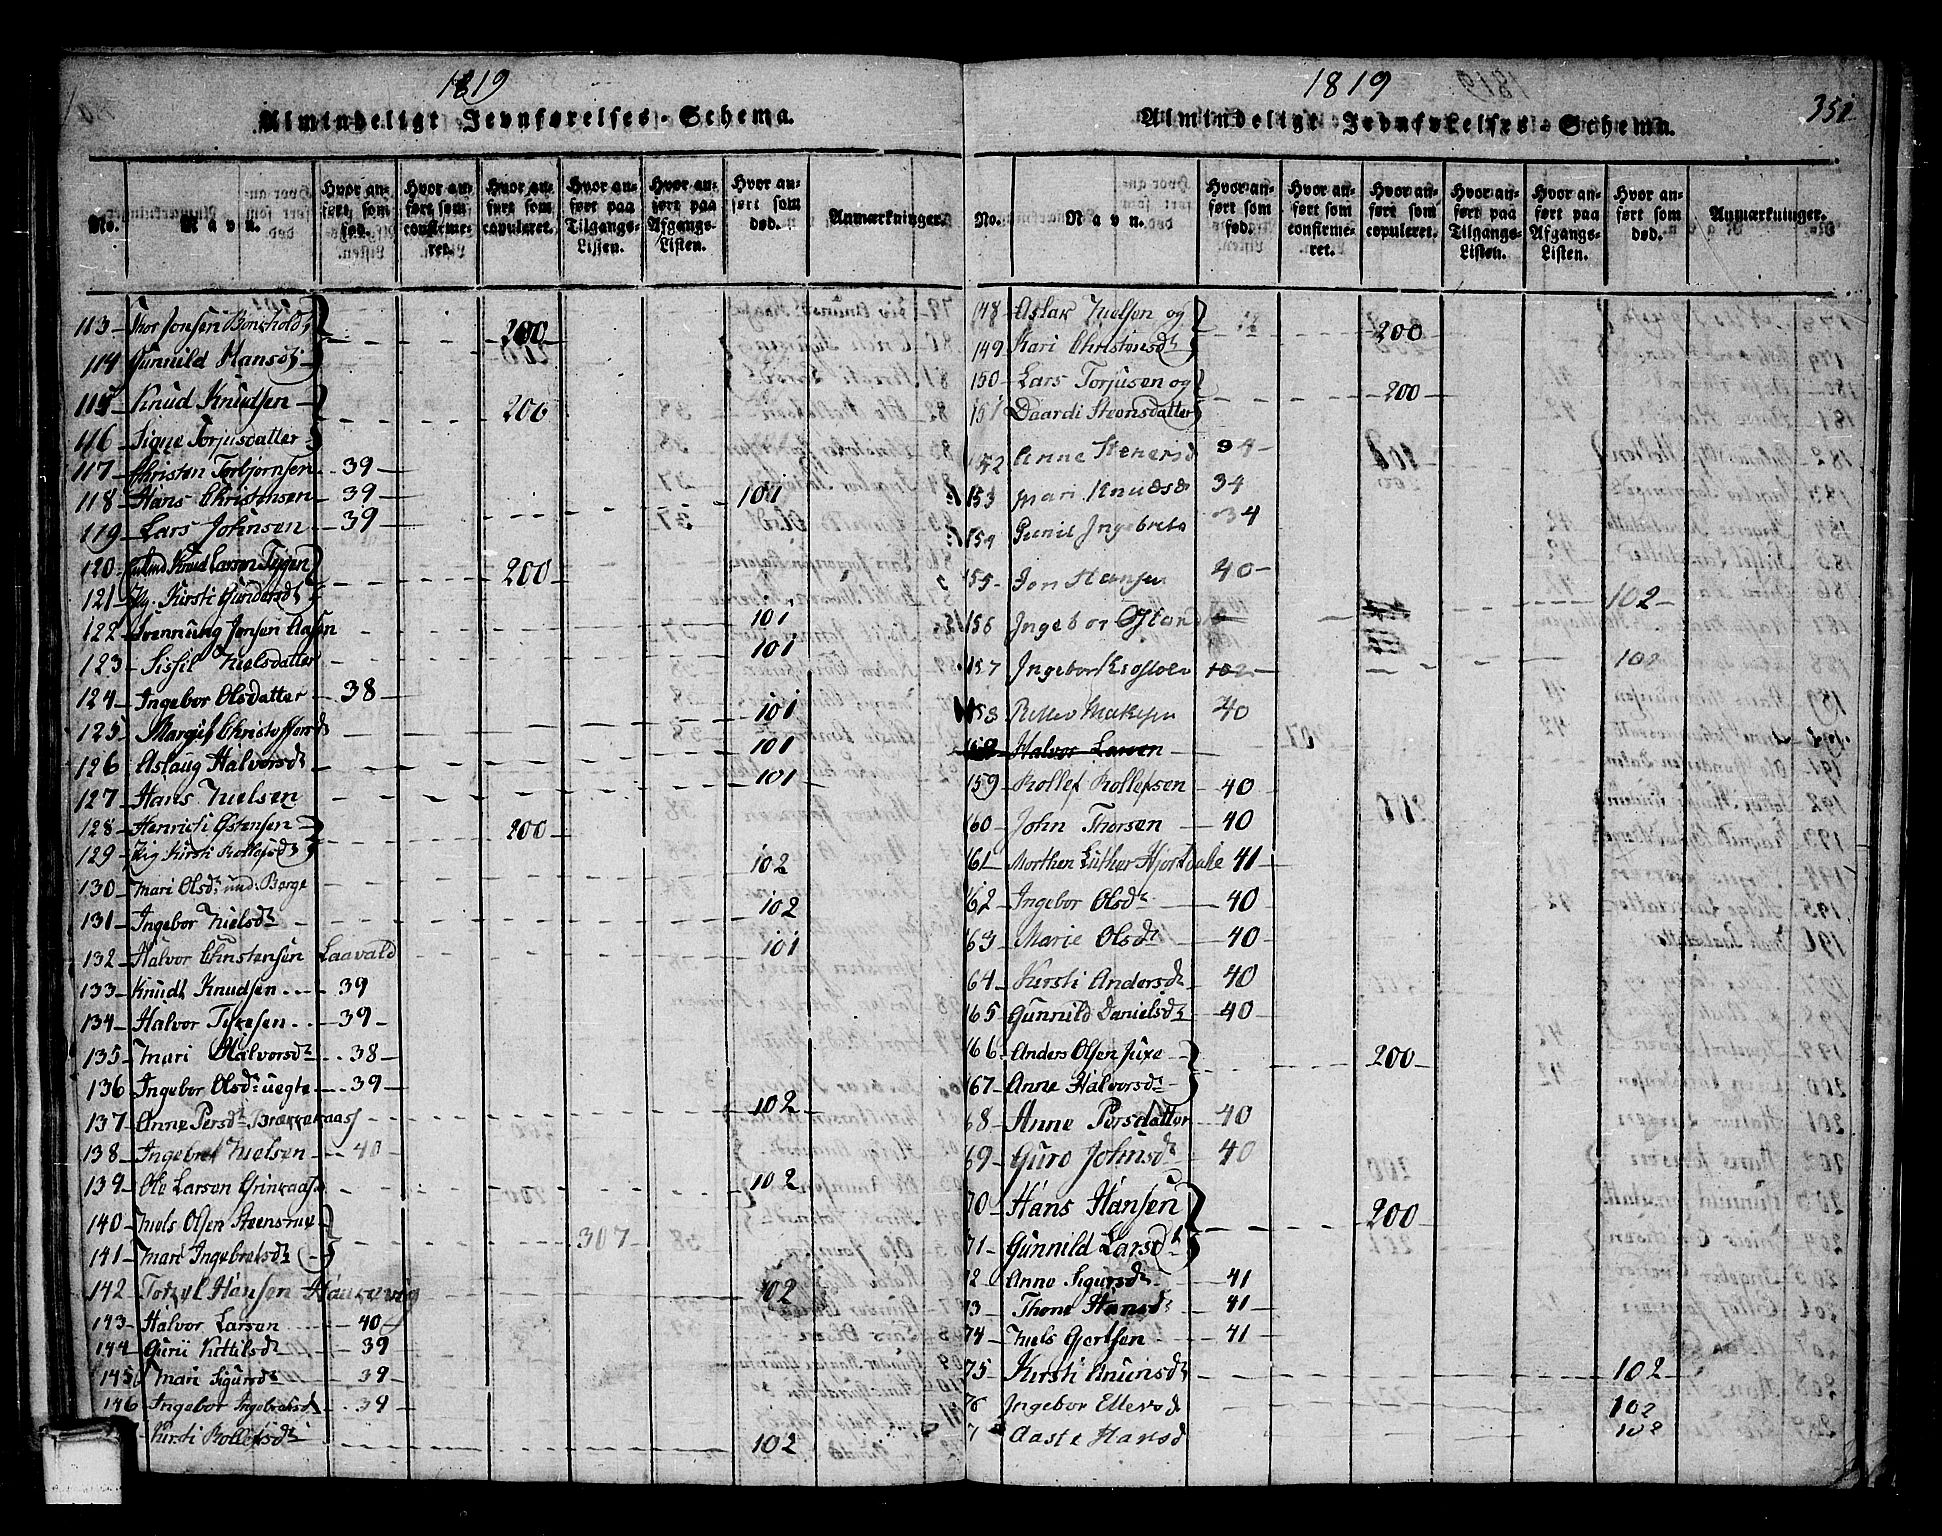 1819
Almindeligt Jevnførelses-Schema.
No. Navn. Hvor anført som fød. Hvor anført som confirmeret. Hvor anført som copuleret. Hvor anført paa Tilgangs-Listen. Hvor anført paa Afgangs-Listen. Hvor anført som død. Anmærkninger.
113 Thor Jonsen
114 Gunnild Hansd: 200
115 Knud Knudsen
116 Signe Torjusdatter 200
117 Christen Torbjornsen 39
118 Hans Christensen 39 101
119 Lars Johnsen 39
120 Knud Larsen
121 Og Kirsti Gundersdr 200
122 Svennung Jonsen Aasen 101
123 Sissil Nielsdatter 101
124 Ingebor Olsdatter 38
125 Margit Christoffersd 101
126 Aslaug Halvorsdr 101
127 Hans Nielsen 101
128 Henrich Østensen
129 Kirsti Rollefsd 200
130 Mari Olsdr und: Borge 102
131 Ingebor Nielsdr 102
132 Halvor Christensen Laavald 101
133 Knudt Knudsen 39
134 Halvor 39
135 Mari Halvorsdr 38
136 Ingebor Olsdr uegte 39
137 Anne Persdr 102
138 Ingebret Nielsen 40
139 Ole Larsen 102
140 Niels Olsen
141 Mari Ingebretsdr 307
142 Hansen 102
143 Halvor Larsen 40
144 Guru Kittilsdr 39
145 Mari Sigursdr 39
146 Ingebor Ingebretsd 39
Kirsti Rollefsdr 102
1819
351
Almindeligt Jevnførelses-Schema.
No. Navn. Hvor anført som fød. Hvor anført som confirmeret. Hvor anført som copuleret. Hvor anført paa Tilgangs-Listen. Hvor anført paa Afgangs-Listen. Hvor anført som død. Anmærkninger.
148 Aslak Nielsen og
149 Kari Christensdr 200
150 Lars Torjusen og
151 Daardi Steensdatter 200
152 Anne Stenersd 34
153 Mari Knudsd 34
154 34
155 Jon Hansen 40
156 102
157 102
158 40
Halvor Larsen
159 Rollef Rollefsen 40
160 John Thorsen 40
161 Morthen Luther Hjortdale 41
62 Ingebor Olsdr 40
63 Marie Olsdr 40
64 Kirsti Andersdr 40
65 Gunnild Danielsdr 40
66 Anders Olsen Juxe
67 Anne Halvorsdr 200
68 Anne Persdatter 40
69 Guro Johnsdr 40
70 Hans Hansen
71 Gunnild Larsdr 200
72 Anne Sigursdr 41
73 Thone Hansd 41
74 Niels Gjertsen 41
75 Kirsti Anunsdr 102
76 Ingebor Ellevsd 102
7 Aaste Hansd 102